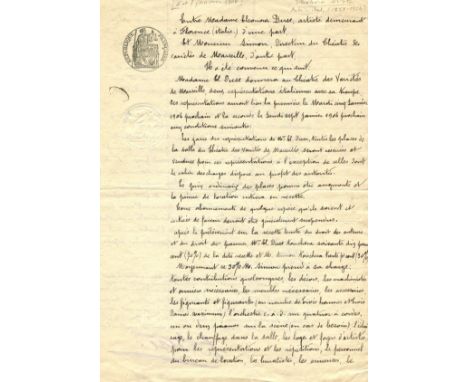 Entre Madame Eleonora Duse, artiste demeurant
à Florence (Italie) d'une part,
Et Monsieur Simon, Directeur du Théâtre des
Variétés de Marseille, d'autre part.
Il a été convenu ce qui suit.
Madame El. Duse donnera au Théâtre des Variétés
de Marseille, deux représentations italiennes avec sa troupe.
Ces représentations auront lieu la première le Mardi cinq Janvier
1906 prochain et la seconde le Jeudi sept Janvier 1906 prochain
aux conditions suivantes:
Les jours des représentations de Mme El. Duse, toutes les places de
la salle du Théâtre des Variétés de Marseille, seront
vendues pour ces représentations à l'exception de celles dont
le cahier des charges dispose au profit des autorités.
Le prix ordinaire des places pourra être augmenté et la
prime de location entrera en recette.
Tous abonnements de quelque espèce qu'ils soient et
entrées de faveur devront être généralement suspendues.
après le prélèvement sur la recette brute du droit des auteurs
et du droit des pauvres Mme El. Duse touchera soixante dix pour
cent (70%) de la dite recette et Mr. Simon touchera trente pour cent (30%)
Moyennant ce 30% Mr. Simon prend à sa charge:
Toutes contributions quelconques, les décors, les machinistes
et ouvriers nécessaires, les meubles nécessaires, les accessoires
les figurants et figurantes, au nombre de trois hommes et trois
Dames maximum, l'orchestre c. à. d. un quatuor à cordes,
un ou deux pianos sur la scène (en cas de besoin) l'éclai
rage, le chauffage dans la salle, les loges et foyer d'artistes
pour les représentations et les répétitions, le personnel
du bureau de location, les buralistes, les ouvreuses, le